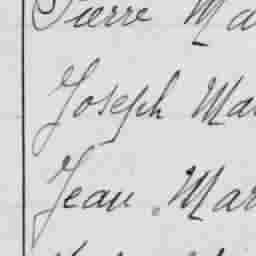 Pierre Ma
Joseph Mar
Jean Mar